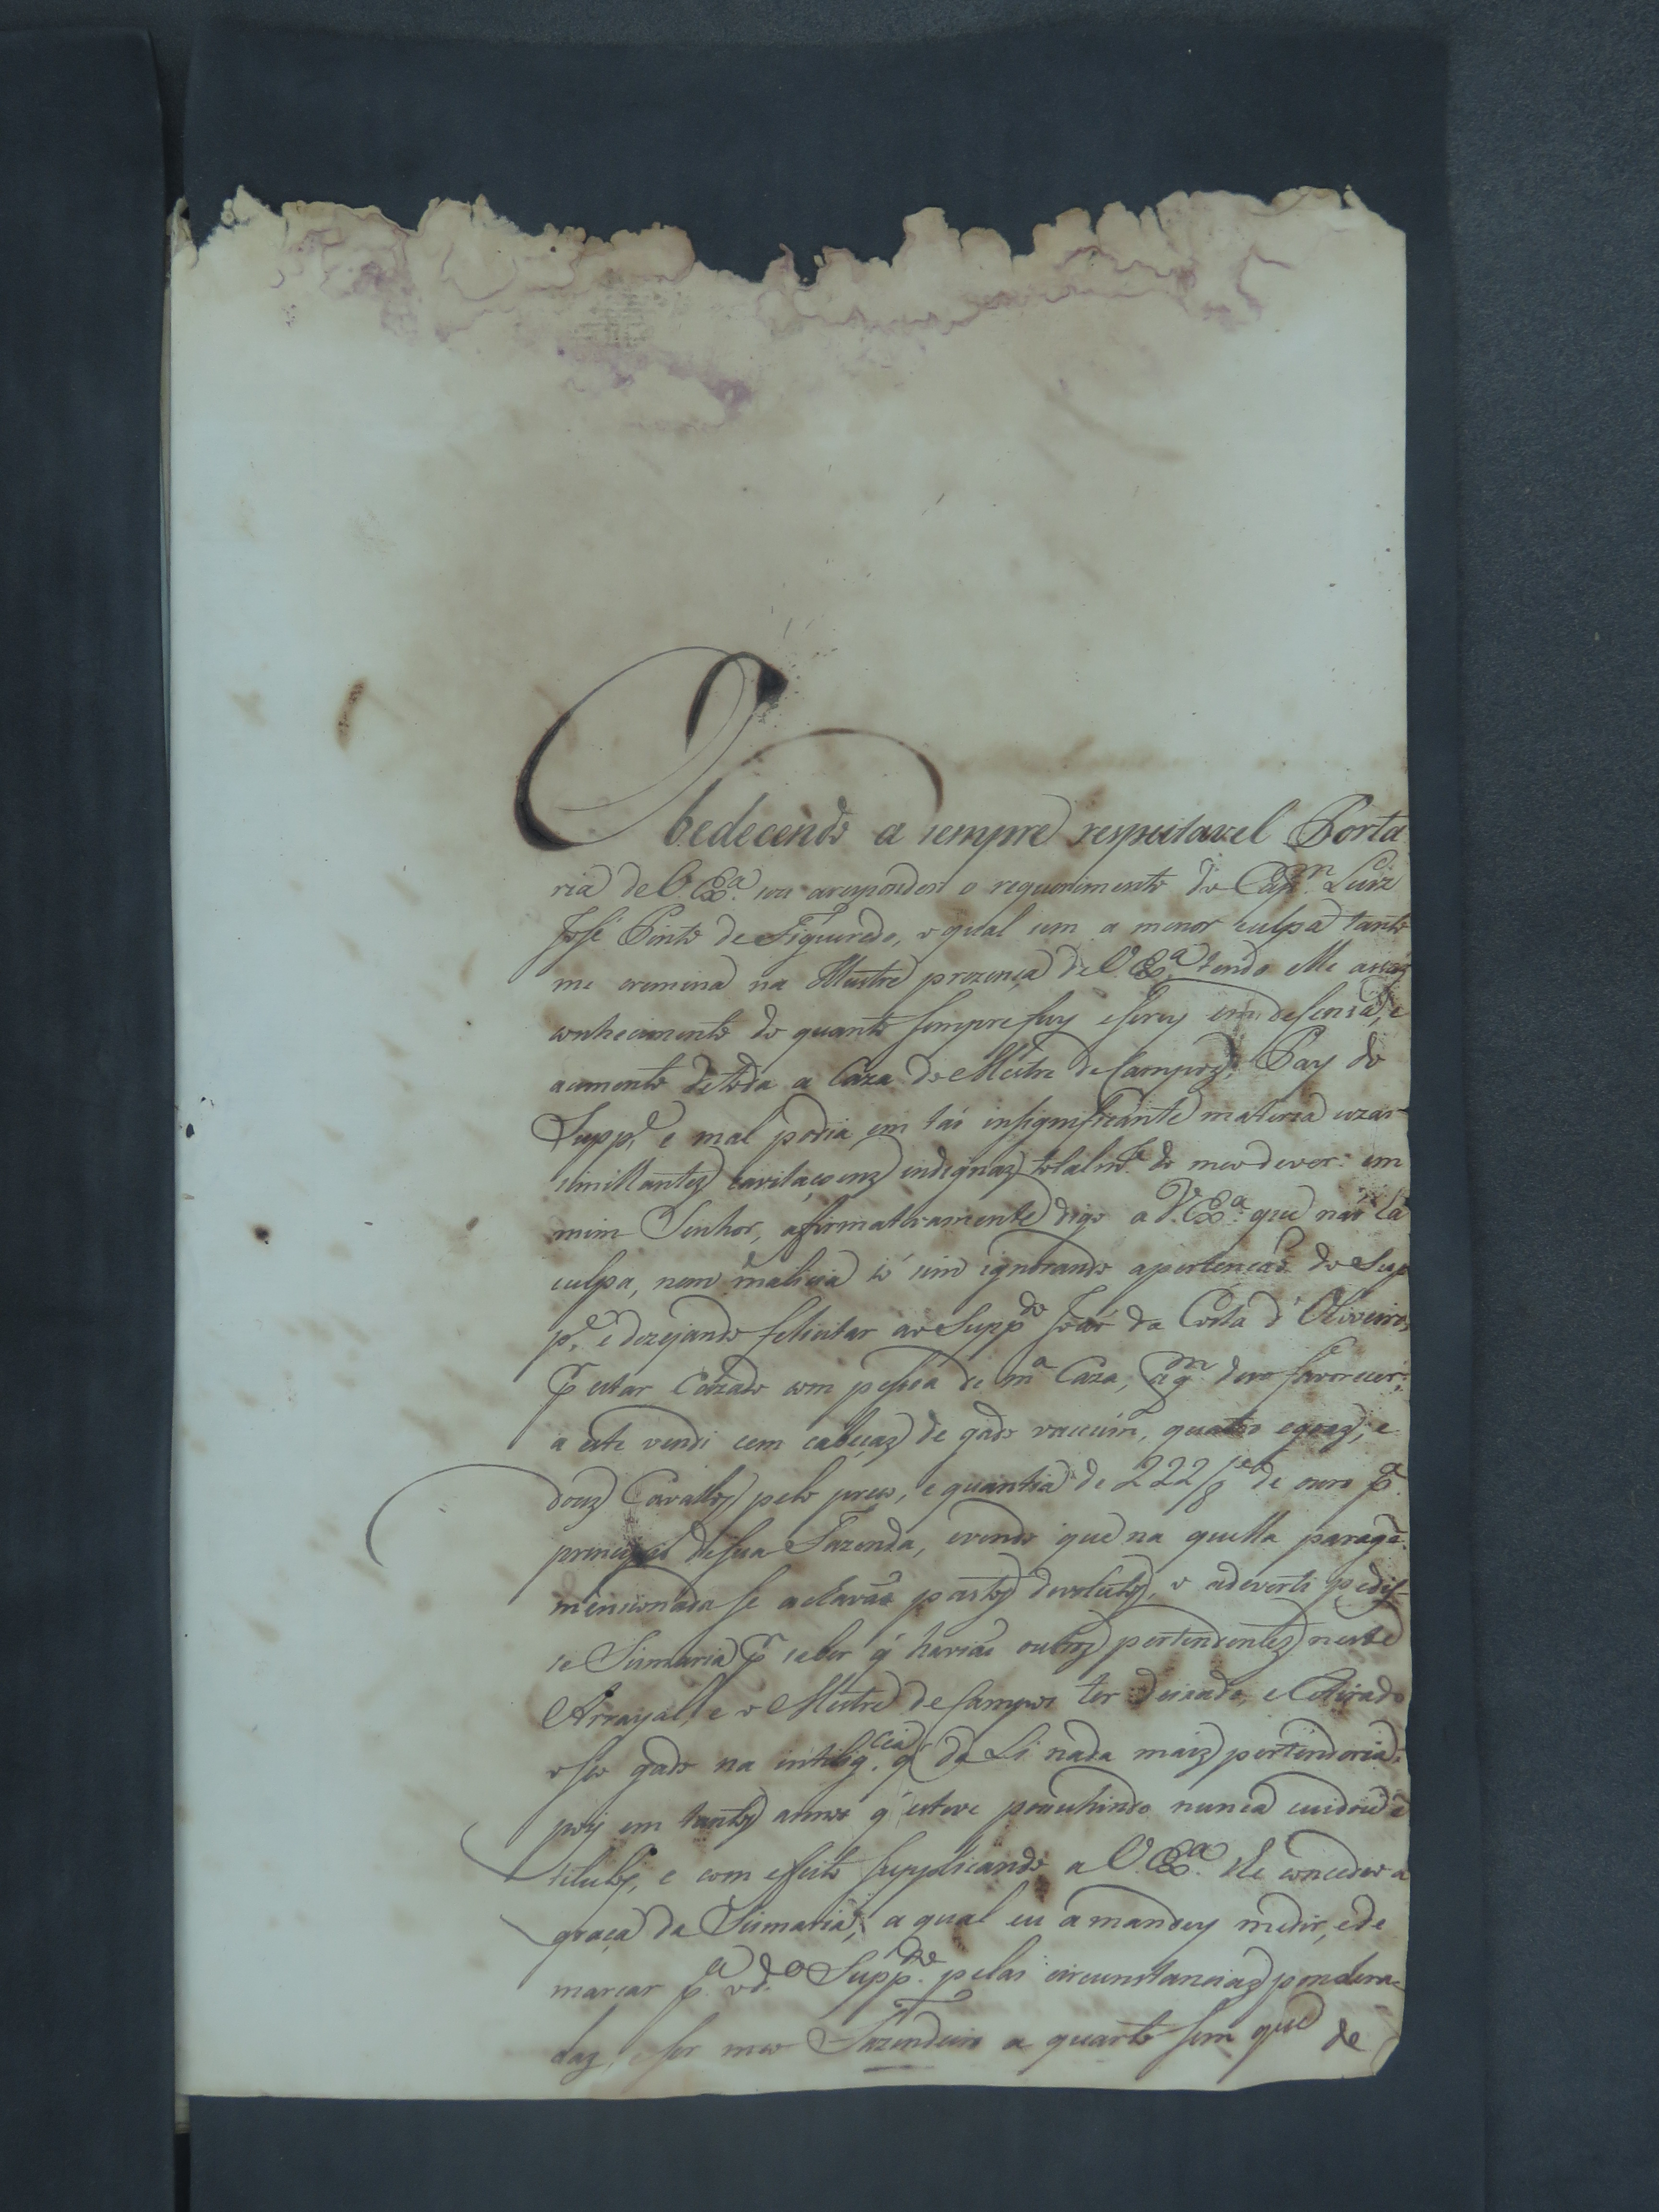 Obedecendo a sempre respeitavel Porta
ria de V. Exª. vou a responder o requerimento do Capᵐ. Luiz
José Pinto de Figueredo, o qual sem a menor culpa tanto
me cremina na Illustre prezença de V. Exª. tendo elle assaz
conhecimento do quanto sempre fuy e serey em defensa, e
aumento de toda a Caza do Mestre de Campo, Pay do
Suppᵉ. e mal podia em tão insignificante materia uzar
simillantes cavilaçoens indignas totalmᵗᵉ. do meo dever: em
mim Senhor, affirmativamente digo a V. Exª. que não há
culpa, nem malicia só sim ignorando a pertenção do Sup
pᵉ. e dezejando felicitar ao Suppᵈᵒ João da Costa d'Oliveira,
p̃ estar Cazado com pessoa de mª Caza, a qᵐ devo favorecer:
a este vendi cem cabeças de gado vaccum, quatro egoas, e
douz Cavallos pelo preço, e quantia de 222/8ᵃˢ de ouro pª.
principio de sua Fazenda, e vendo que na quella paragẽ
mencionada se achavão pastos devolutos, o adeverti pedis-
se Sismaria p̃ saber q̃ havião outros pertendentes neste
Arrayal, e o Mestre de Campo ter deixado, e retirado
o seo gado na intelligᶜⁱᵃ. q̃ da Li nada mais pertenderia:
pois em tantos annos q̃ esteve possuhindo nunca cuidou ẽ
titulos, e com effeito supplicando a V. Exª. lhe concedeo a
graça da Sismaria, a qual eu a mandey medir, e de
marcar pª. o dº Suppᵈᵒ. pelas circunstancias pondera-
das, e ser meo Fazendeiro a quarto sem que de